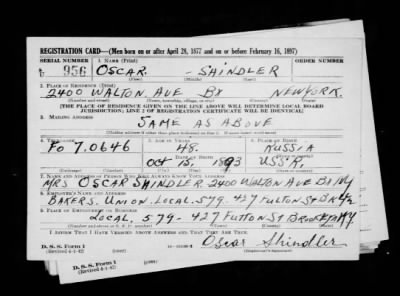 REGISTRATION CARD—(Men born on or after April 28, 1877 and on or before February 16, 1897)
SERIAL NUMBER 1. NAME (Print)
U 956 OSCAR - SHINDLER
(First) (Middle) (Last)
2. PLACE OF RESIDENCE (Print)
2400 WALTON AVE BX NEW YORK.
(Number and street) (Town, township, village, or city) (County) (State)
[THE PLACE OF RESIDENCE GIVEN ON THE LINE ABOVE WILL DETERMINE LOCAL BOARD
JURISDICTION; LINE 2 OF REGISTRATION CERTIFICATE WILL BE IDENTICAL]
3. MAILING ADDRESS
SAME AS ABOVE
4. TELEPHONE 5. AGE IN YEARS 6. PLACE OF BIRTH
FO 7.0646 48. RUSSIA
DATE OF BIRTH
Oct 15. 1893 USSR.
7. NAME AND ADDRESS OF PERSON WHO WILL ALWAYS KNOW YOUR ADDRESS
MRS OSCAR SHINDLER 2400 WALTON AVE BX NY
8. EMPLOYER'S NAME AND ADDRESS
BAKERS. UNION. LOCAL. 579. 427 FULTON ST BK
9. PLACE OF EMPLOYMENT OR BUSINESS
LOCAL. 579- 427 FULTON ST BROOKLYN NY
I AFFIRM THAT I HAVE VERIFIED ABOVE ANSWERS AND THAT THEY ARE TRUE.
D. S. S. Form 1
(Revised 4-1-42) Oscar Shindler
D. S. S. Form 1
(Revised 4-1-42)